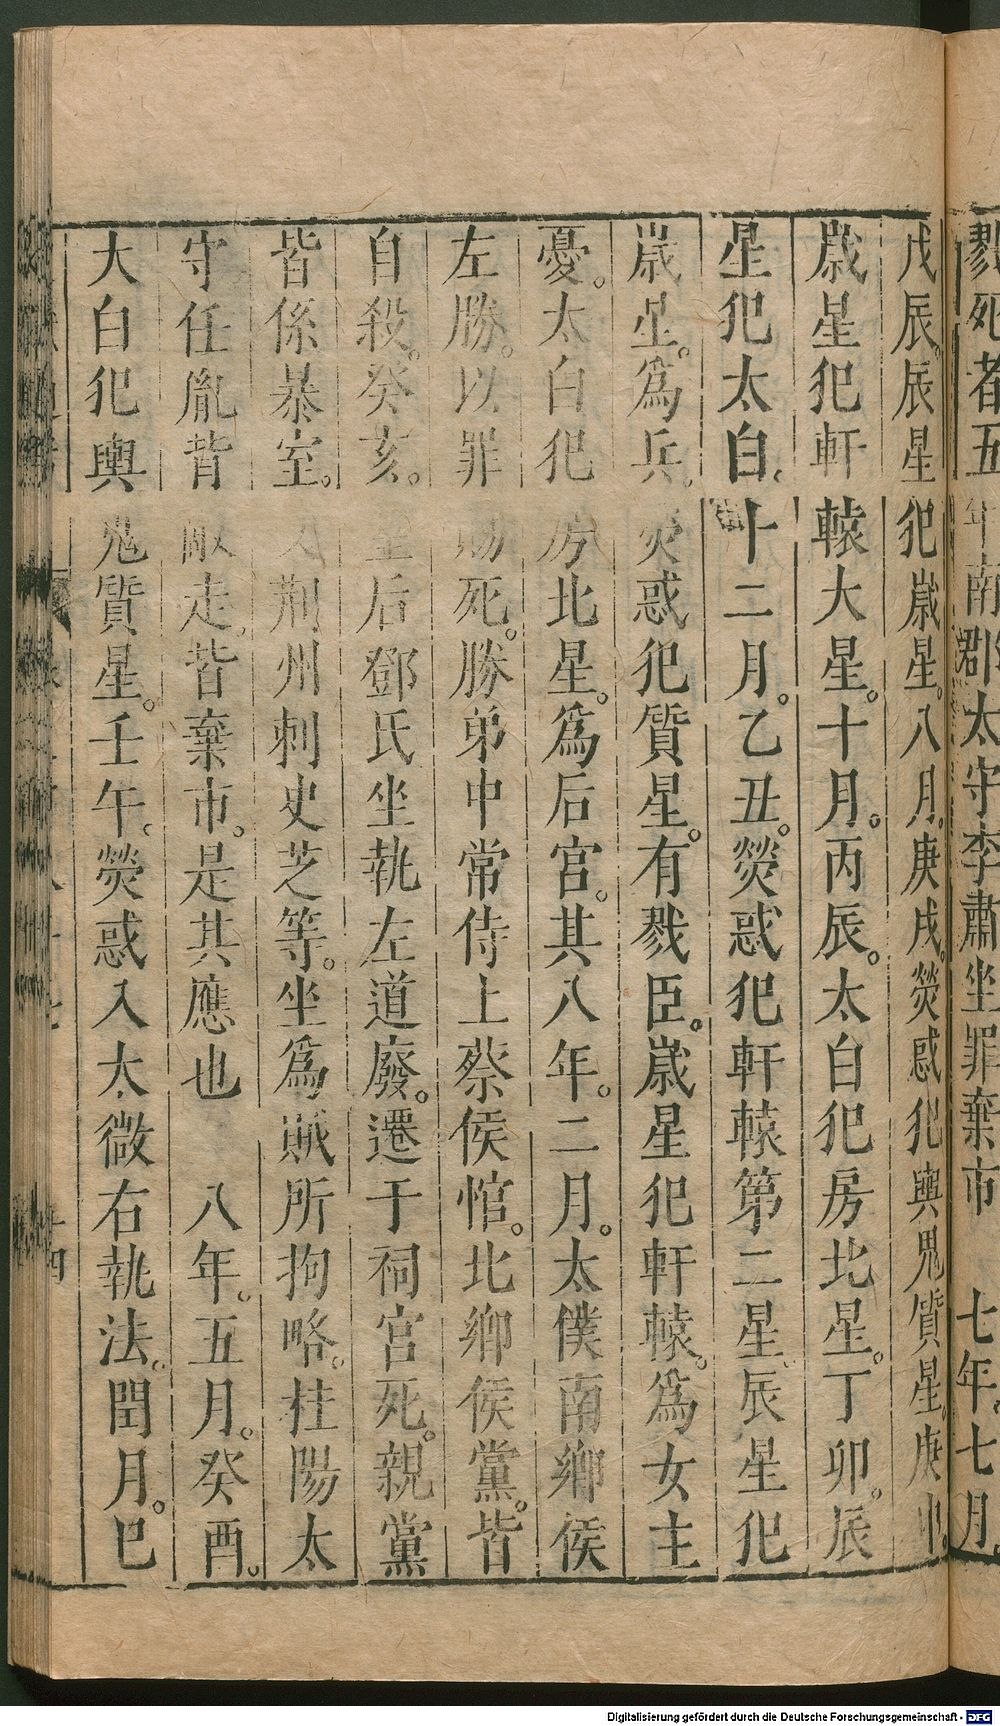 戮死者五年南郡太守李肅坐罪棄市　七年七月
戊辰辰星犯歲星八月庚戌熒惑犯輿鬼質星庚申
歲星犯軒轅大星十月丙辰太白犯房北星丁卯辰
星犯太白十二月乙丑熒惑犯軒轅第二星辰星犯
歲星爲兵熒惑犯質星有戮臣歲星犯軒轅爲女主
憂太白犯房北星爲后宮其八年二月太僕南鄉侯
左勝以罪賜死勝弟中常侍上蔡侯悺北鄉侯黨皆
自殺癸亥皇后鄧氏坐執左道廢遷于祠宮死親黨
皆係暴室又荆州刺史芝等坐爲賊所拘略桂陽太
守任胤背敵走皆棄市是其應也　八年五月癸酉
大白犯輿鬼質星壬午熒惑入太微右執法閏月巳
Digitalisierung gefördert durch die Deutsche Forschungsgemeinschaft - DFG